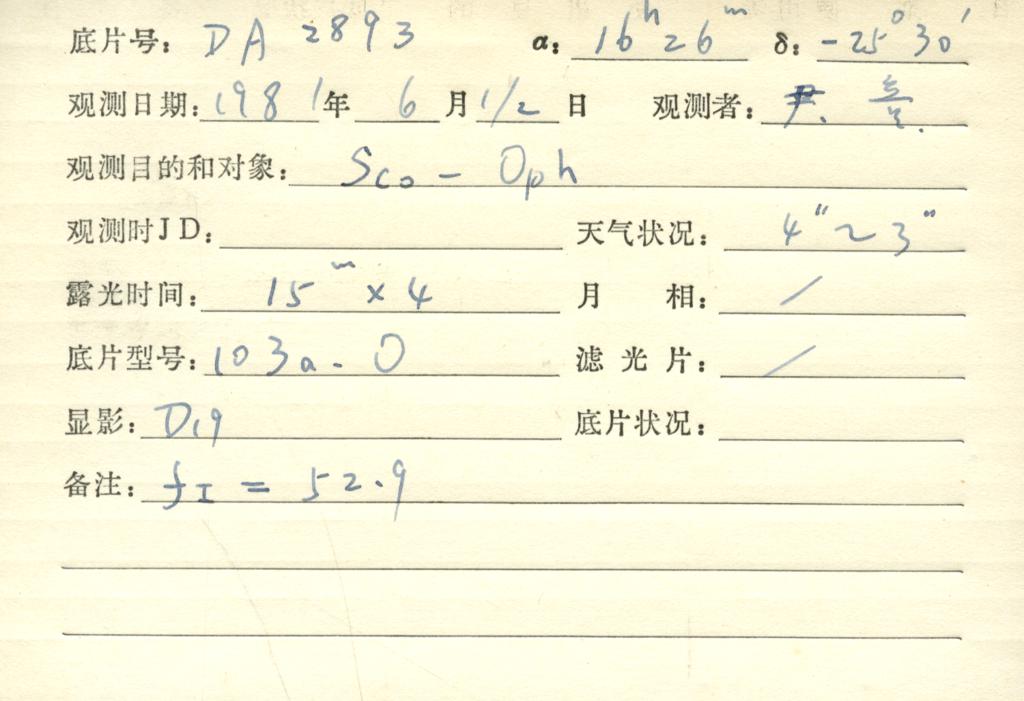 底片号: DA 2893 α: 16ʰ26ᵐ δ: -25°30′
观测日期: 1981年 6月 1/2 日 观测者: 尹.
观测目的和对象: Sco - Oph
观测时JD: 天气状况: 4" ~ 3"
露光时间: 15ᵐ × 4 月 相: /
底片型号: 103a-O 滤光片: /
显影: D19 底片状况:
备注: f_I = 52.9